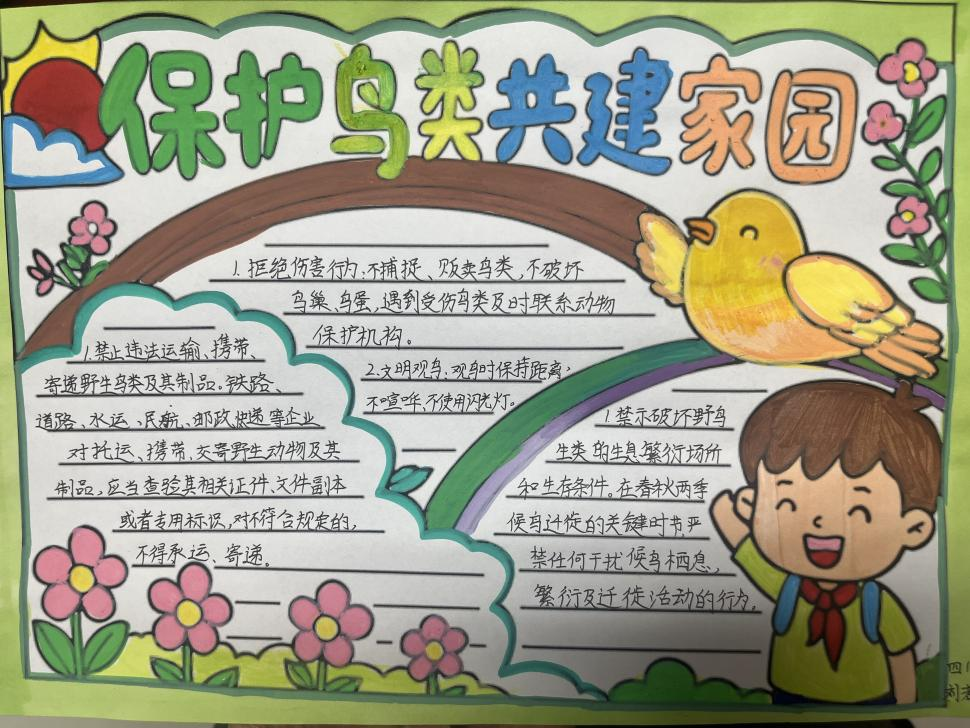 保护鸟类共建家园
1.拒绝伤害行为:不捕捉、贩卖鸟类,不破坏
鸟巢、鸟蛋,遇到受伤鸟类及时联系动物
保护机构。
2.文明观鸟:观鸟时保持距离,
不喧哗,不使用闪光灯。
1.禁止违法运输、携带、
寄递野生鸟类及其制品。铁路、
道路、水运、民航、邮政、快递等企业
对托运、携带、交寄野生动物及其
制品,应当查验其相关证件、文件副本
或者专用标识,对不符合规定的,
不得承运、寄递。
1.禁示破坏野鸟
生类的生息繁衍场所
和生存条件。在春秋两季
候鸟迁徙的关键时节,严
禁任何干扰候鸟栖息,
繁衍及迁徙活动的行为。
四
刘